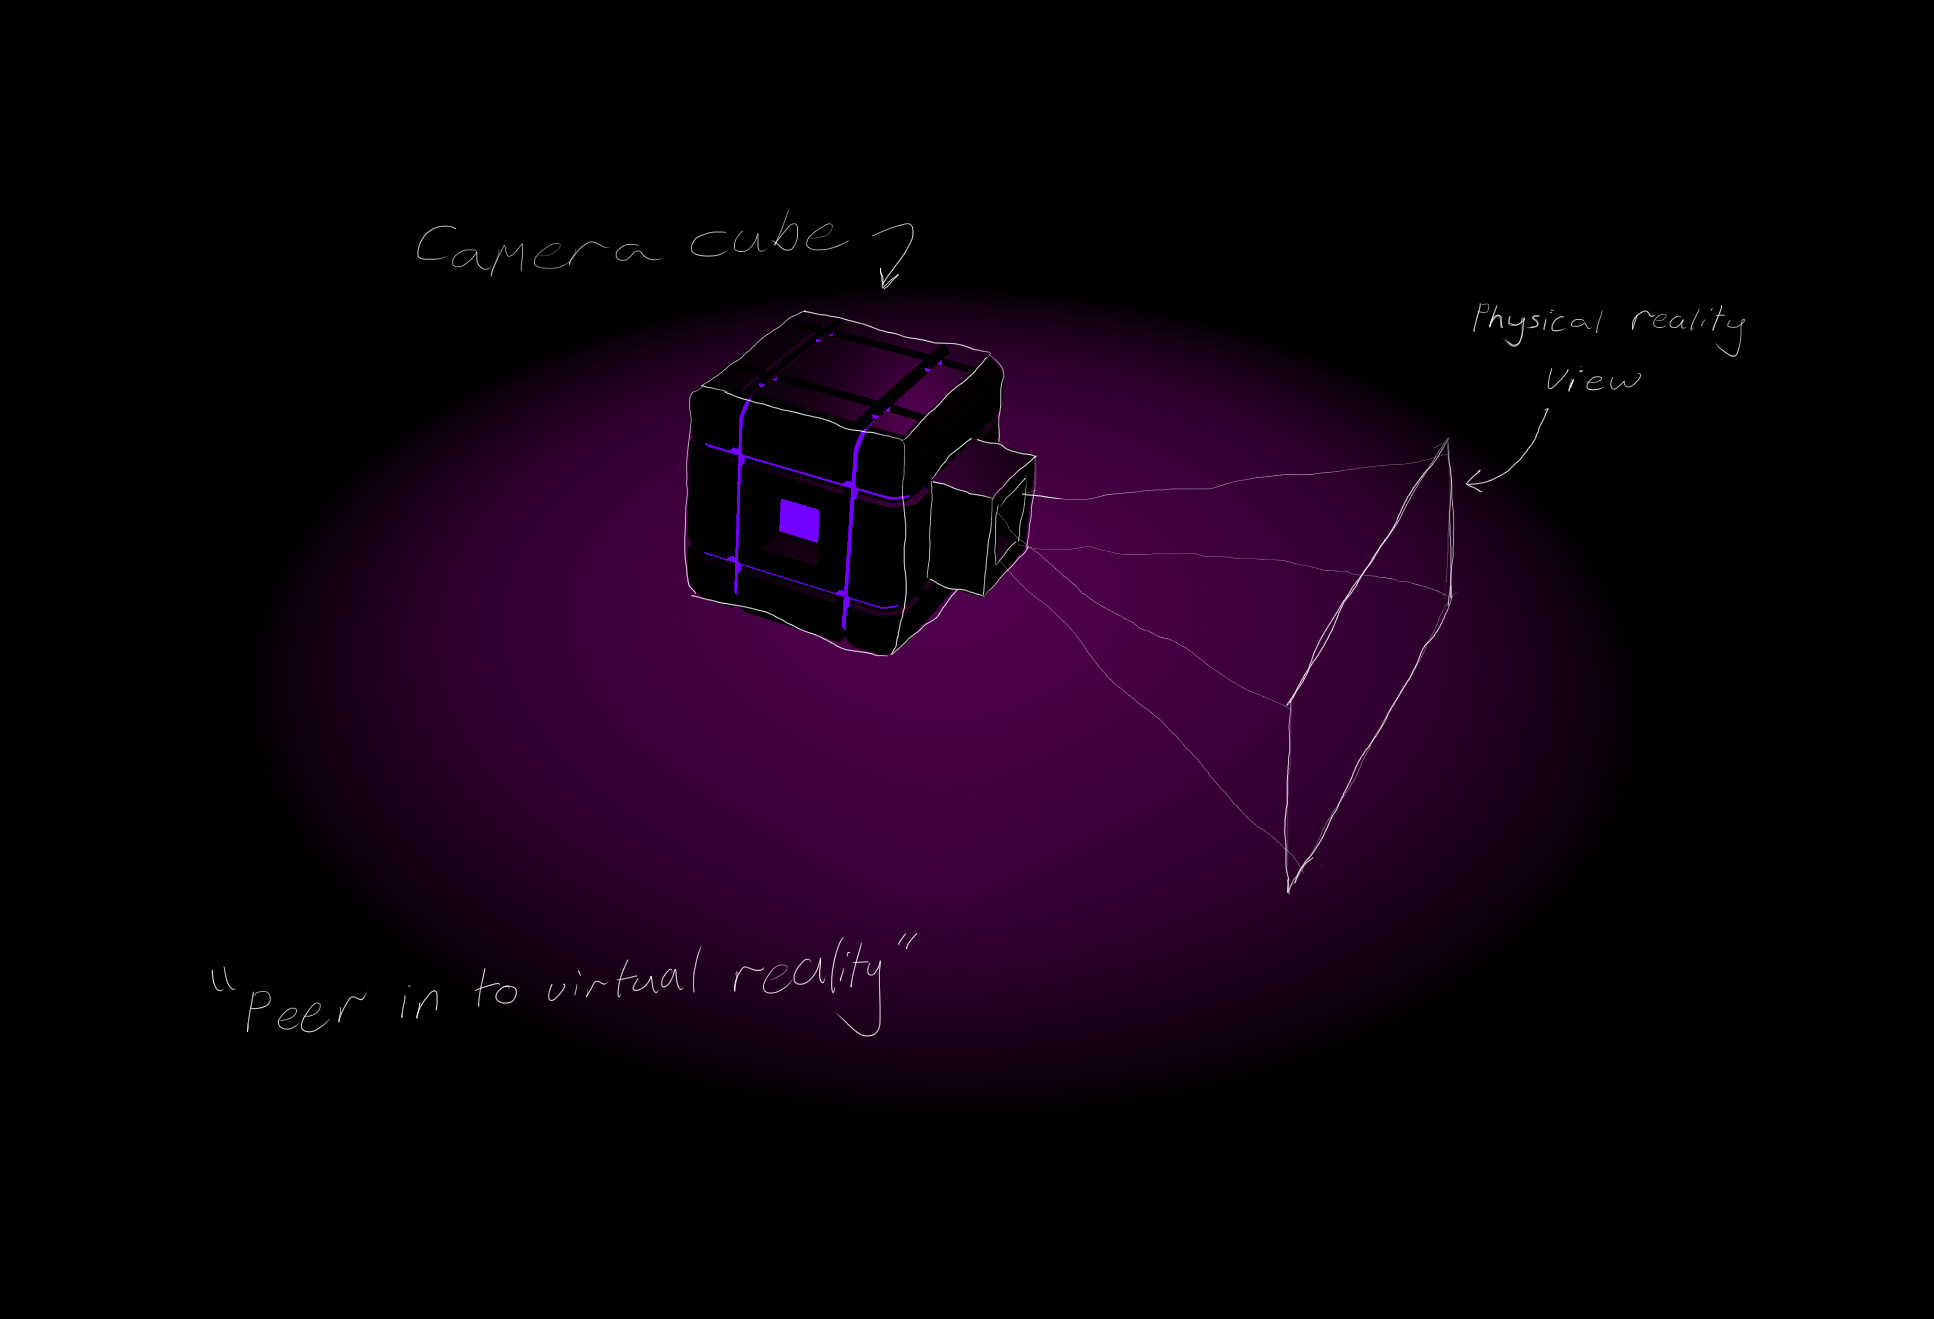 Camera cube
Physical reality
View
"Peer in to virtual reality"